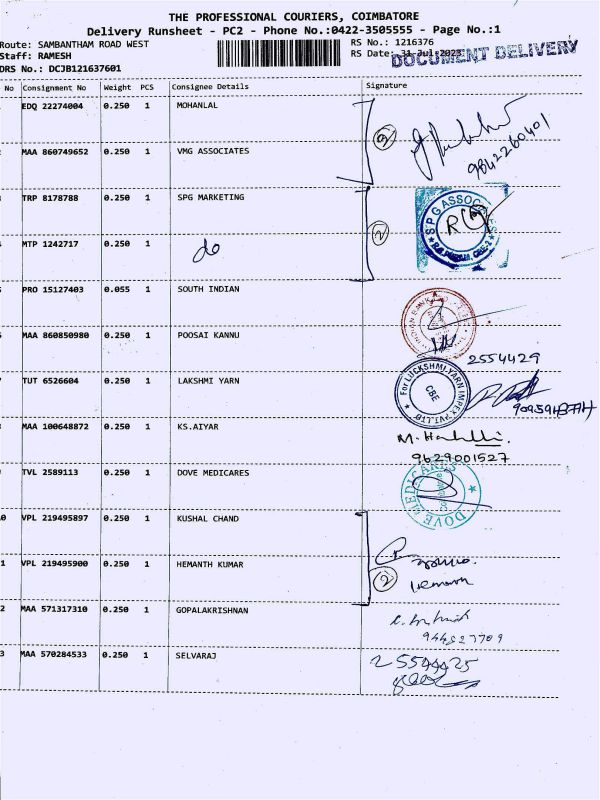 THE PROFESSIONAL COURIERS, COIMBATORE
Delivery Runsheet - PC2 - Phone No.:0422-3505555 - Page No.:1
Route: SAMBANTHAM ROAD WEST RS No.: 1216376
Staff: RAMESH RS Date: 31-Jul-2023 DOCUMENT DELIVERY
DRS No.: DCJB121637601
No Consignment No Weight PCS Consignee Details Signature
EDQ 22274004 0.250 1 MOHANLAL
2
9842260401
MAA 860749652 0.250 1 VMG ASSOCIATES
TRP 8178788 0.250 1 SPG MARKETING
SPG ASSOCIATES
2
MTP 1242717 0.250 1 do
PRO 15127403 0.055 1 SOUTH INDIAN
MAA 860850980 0.250 1 POOSAI KANNU
2554429
TUT 6526604 0.250 1 LAKSHMI YARN
For LUCKSHMI YARN IMPEX PVT LTD
CBE
MAA 100648872 0.250 1 KS.AIYAR
9629001527
TVL 2589113 0.250 1 DOVE MEDICARES
DOVE MEDICARES
0 VPL 219495897 0.250 1 KUSHAL CHAND
1 VPL 219495900 0.250 1 HEMANTH KUMAR
2
2 MAA 571317310 0.250 1 GOPALAKRISHNAN
3 MAA 570284533 0.250 1 SELVARAJ
2554425